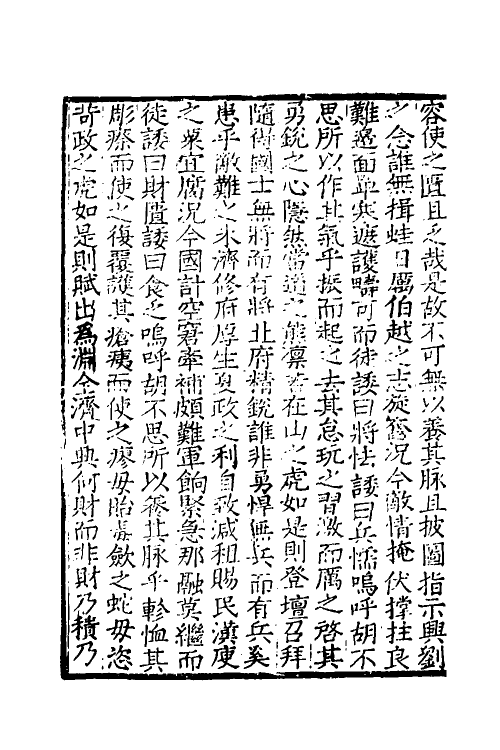 容使之匱且乏哉是故不可無以養其脉且披圖指示興劉
之念誰無揖蛙日厲伯越之志旋奮況今敵情掩伏撐拄良
難邊面單寒遮護疇可而徒諉曰將怯諉曰兵懦嗚呼胡不
思所以作其氣乎振而起之去其怠玩之習激而厲之啓其
勇銳之心隱然當道之熊凛若在山之虎如是則登壇召拜
隨得國士無將而有將北府精銳誰非勇悍無兵而有兵奚
患乎敵難之未濟修府厚生夏政之利自致減租賜民漢庾
之粟宜腐況今國計空窘牽補頗難軍餉緊急那融莫繼而
徒諉曰財匱諉曰食乏嗚呼胡不思所以養其脉乎軫恤其
彫瘵而使之復覆護其瘡痍而使之瘳毋貽毒歛之蛇毋恣
苛政之虎如是則賦出爲淵全濟中興何財而非財乃積乃